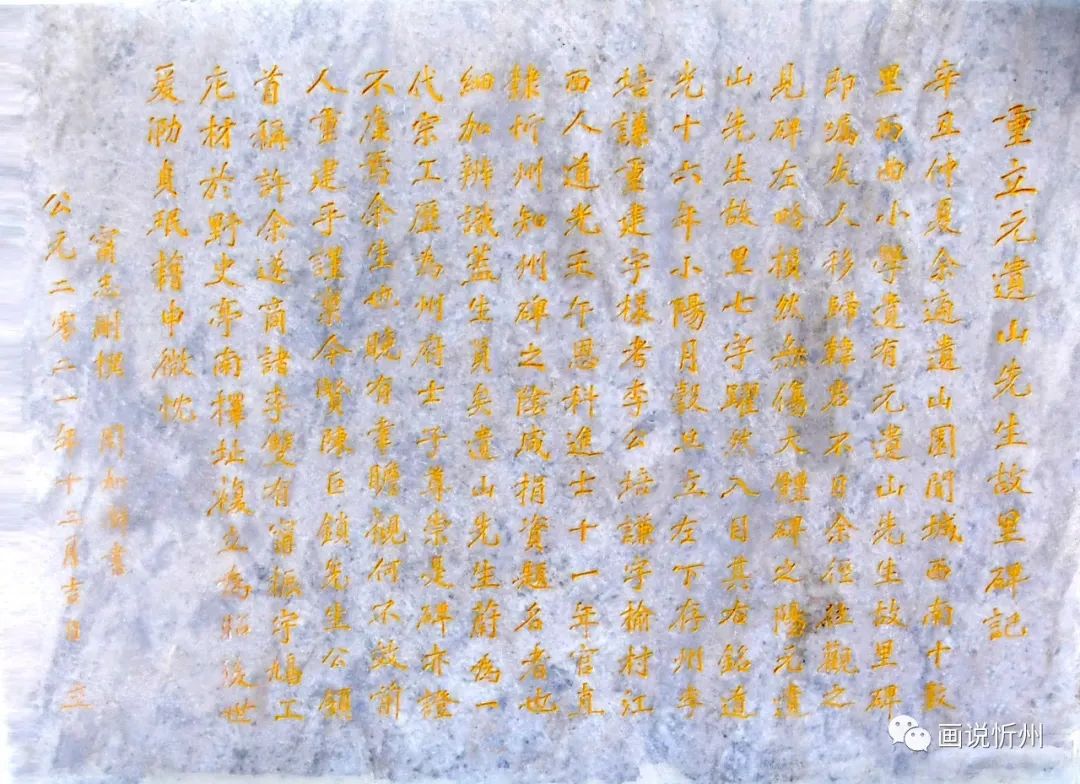 重立元遺山先生故里碑記
辛丑仲夏余適遺山園聞城西南十數
里西曲小學遺有元遺山先生故里碑
即囑友人移歸韓岩不日余徑往觀之
見碑左略損然無傷大體碑之陽元遺
山先生故里七字躍然入目其右銘道
光十六年小陽月穀旦立左下存州李
培謙重建字樣考李公培謙字榆村江
西人道光壬午恩科進士十一年官直
隸忻州知州碑之陰咸捐資題名者也
細加辨識蓋生員矣遺山先生蔚為一
代宗工屢為州府士子尊崇是碑亦證
不虛焉余生也晚有幸瞻觀何不效前
人重建乎謹稟今賢陳巨鎖先生公頷
首稱許余遂商諸李雙有甯振宇鳩工
庀材於野史亭南擇址復立為昭後世
爰泐貞珉藉申微忱
甯志剛撰 書
公元二零二一年十二月吉日 立
画说忻州